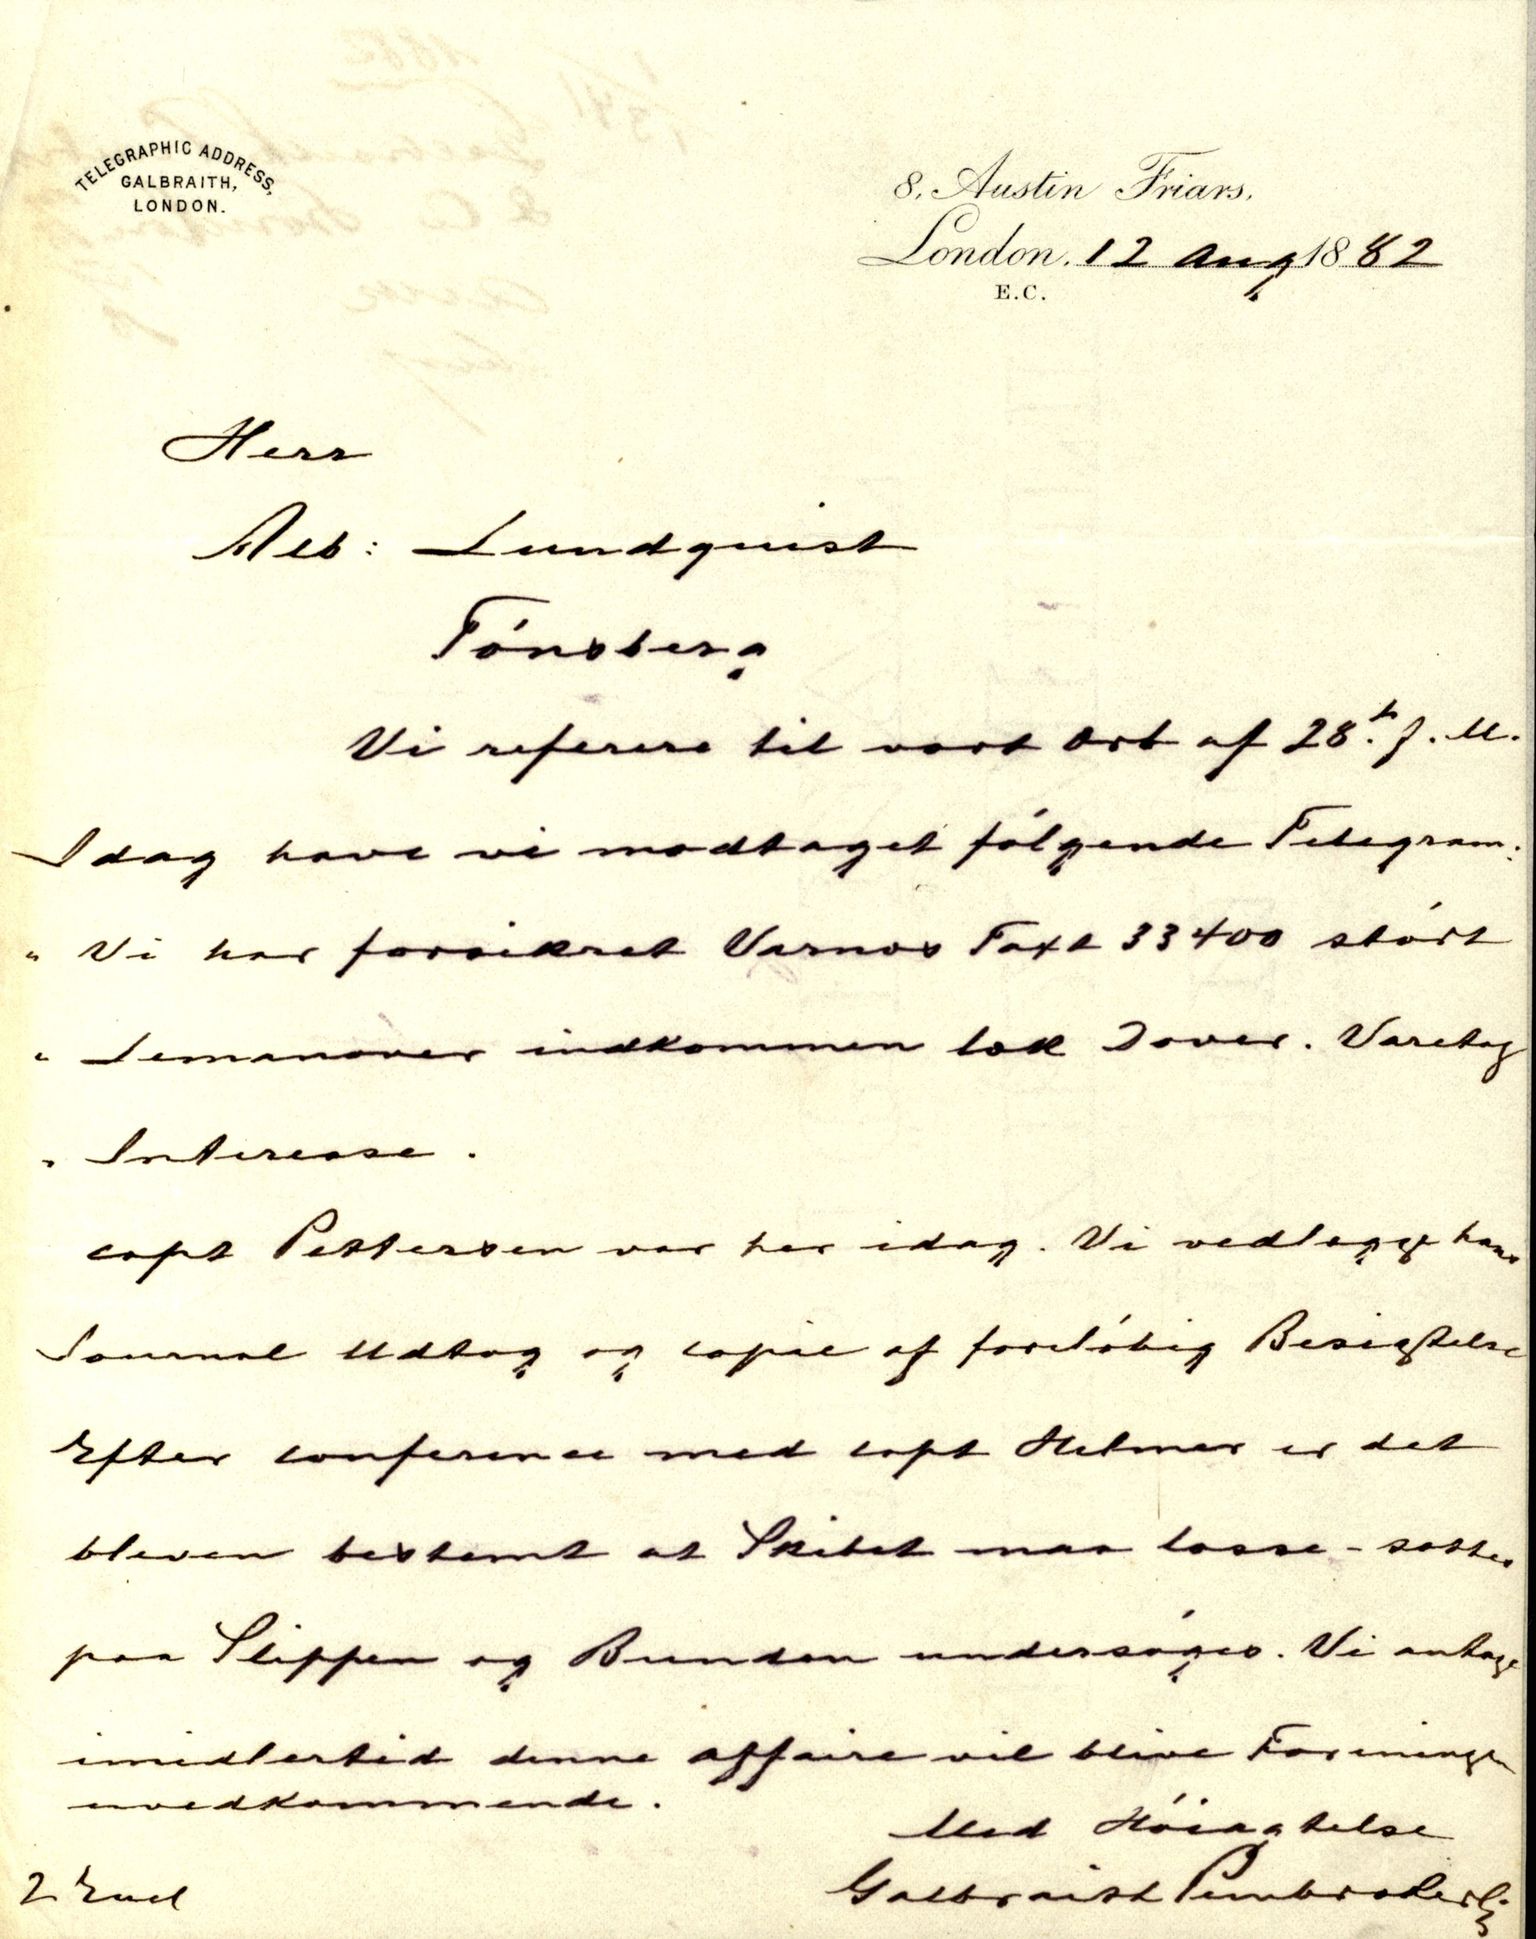 TELEGRAPHIC ADDRESS,
GALBRAITH,
LONDON.
8, Austin Friars,
London, 12 Aug 1882
E.C.
Herr
Alb: Lundquist
Tónsberg
Vi referere til vort Brb af 28.t f. M.
Idag have vi modtaget fólgende Telegram:
" Vi har forsikret Varnos Faxt 33400 stórt
" Lemanover indkommen læk Dover. Varetag
" Interesse.
capt Pettersen var her idag. Vi vedlægge hans
Journal Udtog og copie af forelóbig Besigtelse
Efter conference med capt Helmer er det
bleven bestemt at Skibet maa losse - sættes
paa Slippen og Bunden undersóges. Vi antage
imidlertid denne affaire vil blive Foreningen
uvedkommende.
Med Hóiagtelse
Galbraith Pembroke & Co
2 Encl